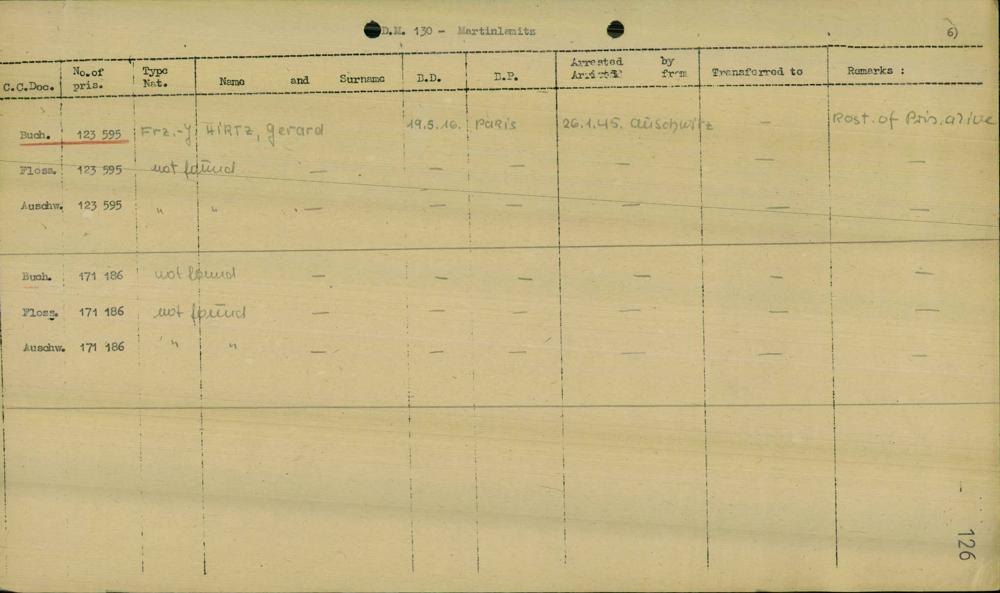 D.M. 130 - Martinlamitz 6)
C.C.Doc. No.of pris. Type Nat. Name and Surname D.D. D.P. Arrested by Arrived from Transferred to Remarks :
Buch. 123 595 Frz.-J HIRTZ, Gerard 19.5.16. Paris 26.1.45. Auschwitz — Rost. of Pris. alive
Floss. 123 595 not found — — — — —
Auschw. 123 595 " " — — — — — —
Buch. 171 186 not found — — — — — —
Floss. 171 186 not found — — — — — —
Auschw. 171 186 " " — — — — — —
126